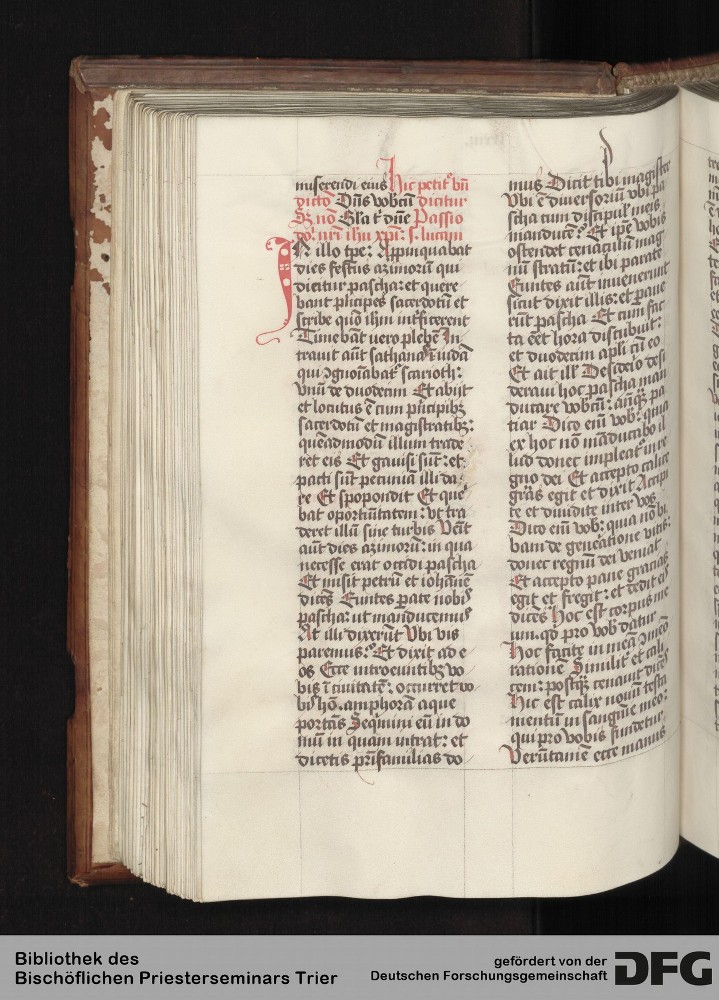 miserendi eius Hic petit᷑ bn̄
dictō Dn̄s vobcū dicitur
Sꝫ nō Gl̄a t᷑ dūe Passio
dn̄i nr̄i ihū xp̄i: s. lucam
IN illo tp̄e: Appinquabat
dies festus azimorū qui
dicitur pascha: et quere
bant p̄ncipes sacerdotū et
scribe quō ihm̄ int᷑ficerent
Timebāt uero plebē In
trauit aūt sathanas ī iudā
qui ꝯgnoīabat᷑ scarioth:
vnū de duodecim Et abijt
et locutus ē cum p̄ncipibꝫ
sacerdotū et magistratibꝫ:
queadmodū illum trade
ret eis Et gauisi sūt: et
pacti sūt pecuniā illi da
re Et spopondit Et que
bat oportūitatem: vt tra
deret illū sine turbis Vēit
aūt dies azimorū: in qua
necesse erat occidi pascha
Et misit petrū et iohānē
dicēs Euntes parate nobis
pascha: ut manducemus
At illi dixerūt Vbi vis
paremus: Et dixit ad e
os Ecce introeuntibꝫ vo
bis ī ciuitatē: occurret vo
bis hō. amphorā aque
portās Sequimini eū in do
mū in quam intrat: et
dicetis pr̄ifamilias do
mus Dicit tibi magister
Vbi ē diuersoriū vbi pa
scha cum discipul᷑ meis
manducē? Et ip̄e vobis
ostendet cenaculū mag
nū stratū: et ibi parate
Euntes aūt inuenerunt
sicut dixit illis: et paue
rūt pascha Et cum fac
ta eēt hora discubuit:
et duodecim apl̄i cū eo
Et ait ill᷑ Desiderio desi
deraui hoc pascha man
ducare vobcū: anq̄ᷓ pa
tiar Dico eim̄ vob᷑: quia
ex hoc nō māducabo il
lud donec impleat᷑ in re
gno dei Et accepto calice
grās egit et dixit Accipi
te et diuidite inter vos
Dico eim̄ vob᷑: quia nō bi
bam de geneatione vitis:
donec regnū dei veniat
Et accepto pane gracias
egit et fregit: et dedit eis
dicēs Hoc est corpus me
um. qd̄ pro vob᷑ dat᷑ur
Hoc facite in meā ꝯmeo
rationē Similit᷑ et cali
cem: postq̄ᷓ cenauit dicēs
Hic est calix nouū testa
mentū in sanguīe meo:
qui pro vobis fundetur
Verūtamē ecce manus
Bibliothek des
Bischöflichen Priesterseminars Trier
gefördert von der
Deutschen Forschungsgemeinschaft DFG